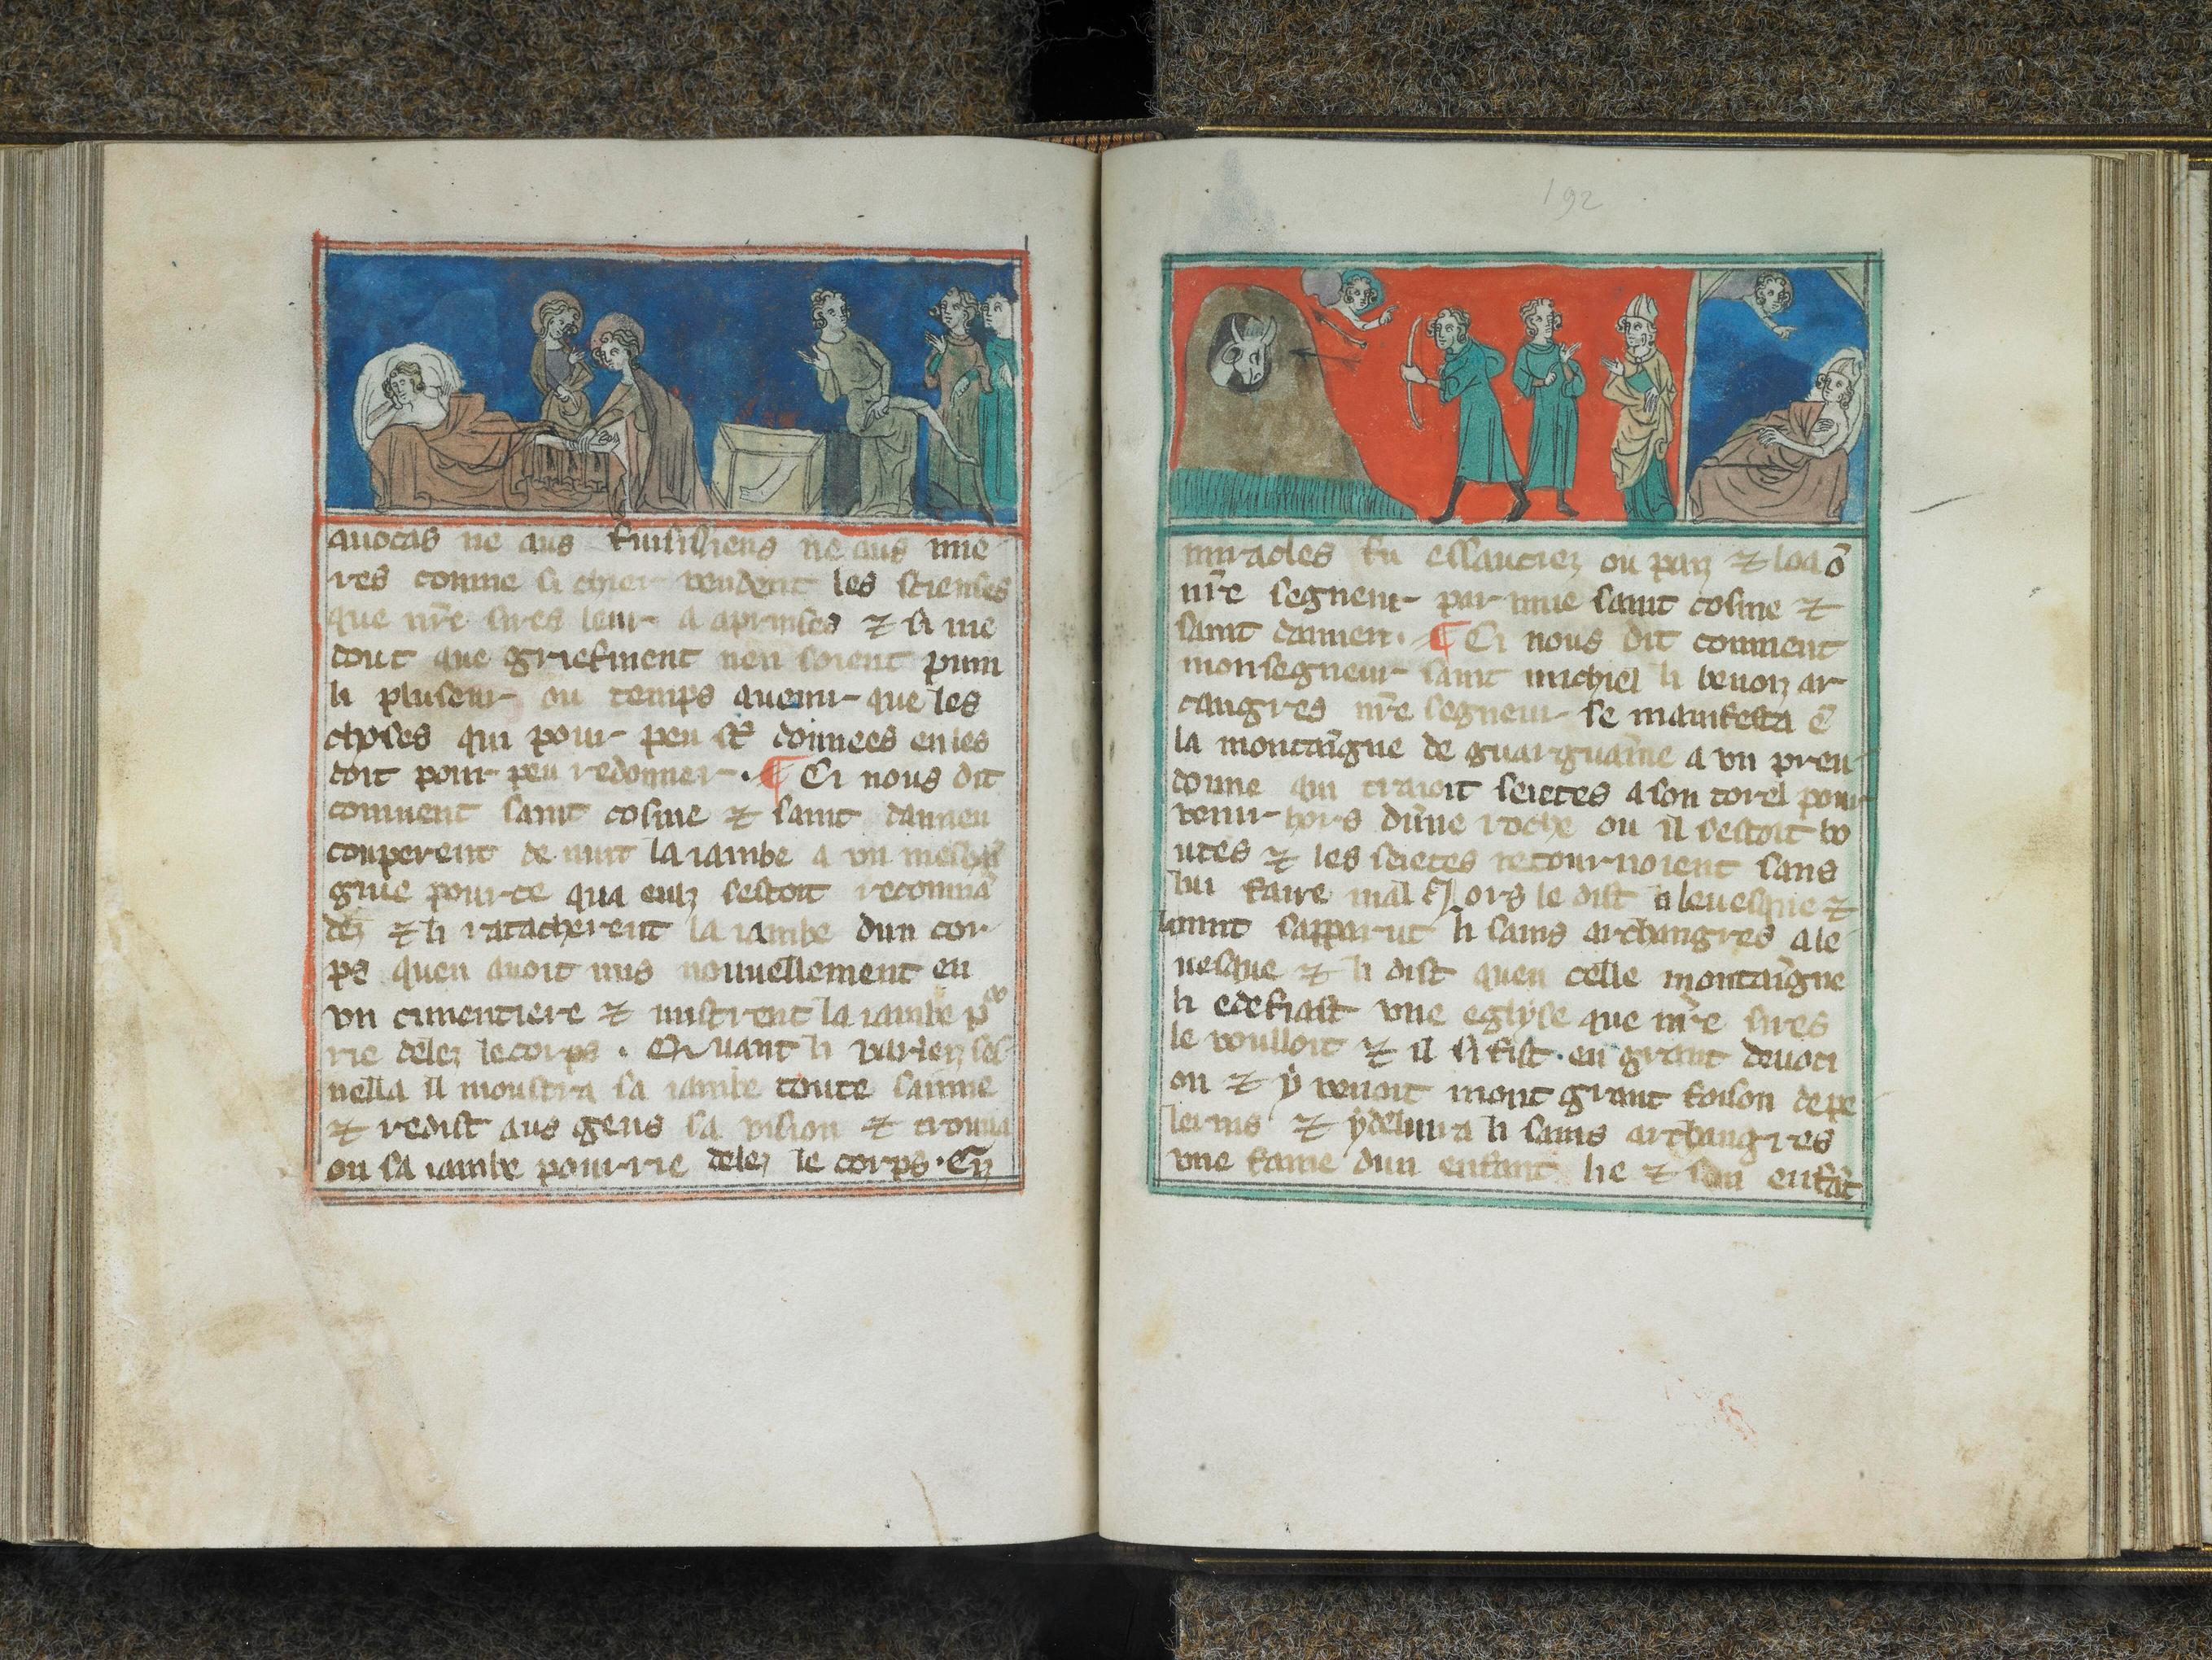 auocas ne aus fuisisiens ne aus mie
res comme si chier vendent les scienses
que nr̄e sires leur a aprinses ⁊ si me
dout que griefment nen soient puni
li pluseur ou temps auenir que les
choses qui pour peu sōt donnees en les
doit pour peu redonner. ¶ Ci nous dit
comment saint cosme ⁊ saint damien
couperent de nuit la iambe a vn
gnie pour ce qua eulz sestoit recommā
dez ⁊ li ratacherent la iambe dun cor
ps quen auoit mis nouuellement en
vn cimentiere ⁊ mistrent la iambe poᷣ
rie delez le corps. Quant li varlez ses
uella il moustra sa iambe toute sainne
⁊ redist aus gens sa vision ⁊ trouua
on sa iambe pourrie delez le corps. Cilz
192
miracles fu essauciez ou paiz ⁊ loa ō
nr̄e segneur par mie saint cosme ⁊
saint damien. ¶ Ci nous dit comment
monsegneur saint michiel li benoiz ar
cangres nr̄e segneur se manifesta ē
la montaigne de guarguaīne a vn preu
domme qui traioit seietes a son torel pour
venir hors dūne roche ou il sestoit bo
utes ⁊ les seietes retournoient sans
lui faire mal Lors le dist a leuesque ⁊
sapparut li sains archangres a le
uesque ⁊ li dist quen celle montaīgne
li edefiast vne eglyse que nr̄e sires
le voulloit ⁊ il si fist. en grant deuoti
on ⁊ y venoit mont grant foison de pe
lerins ⁊ y deliura li sains archangres
vne fame dun enfant lie ⁊ son enfāt